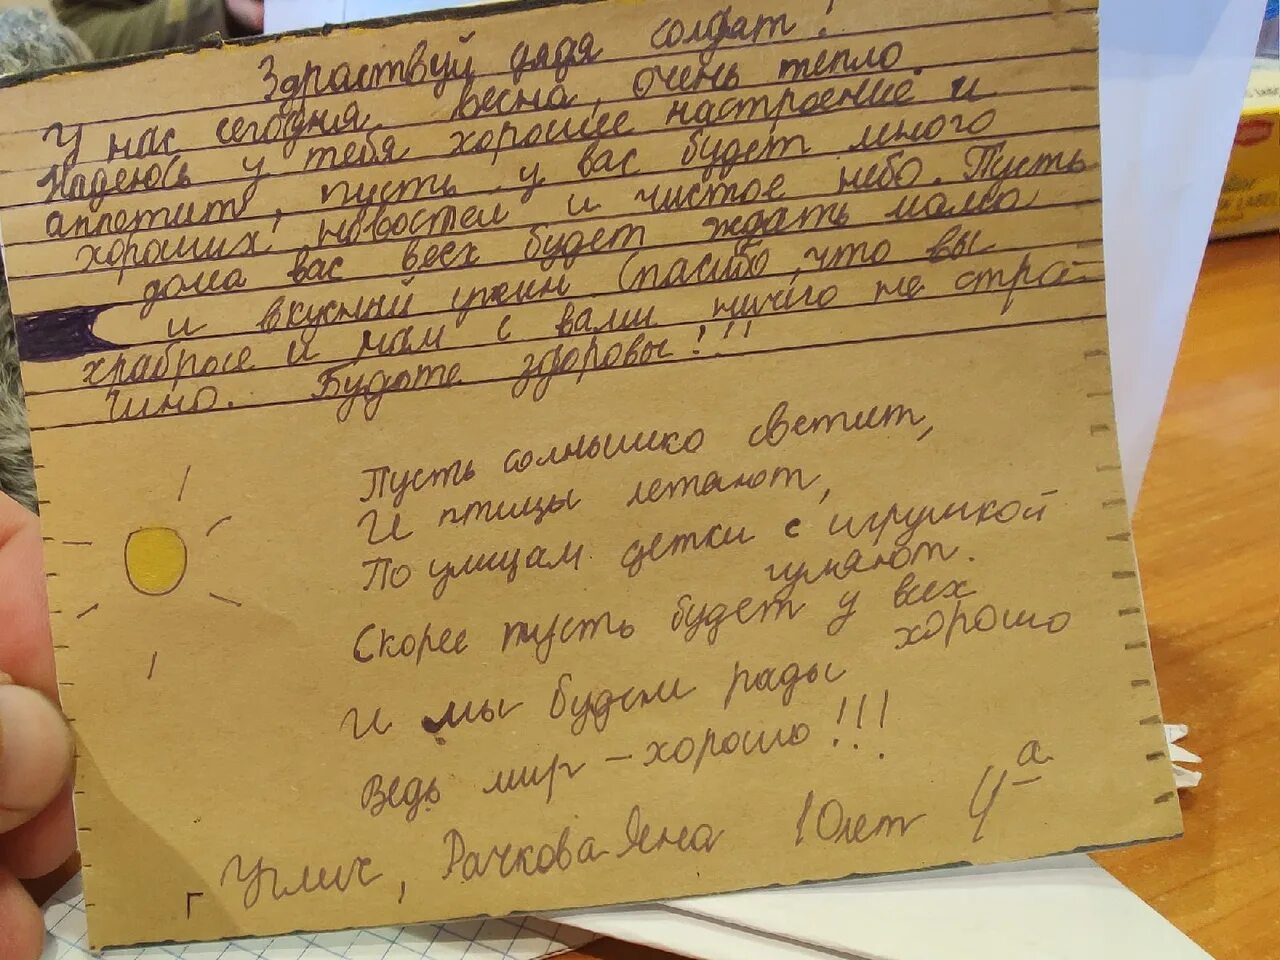 Здраствуй дядя солдат!
У нас сегодня весна, очень тепло.
Надеюсь у тебя хорошее настроение и
аппетит, пусть у вас будет много
хороших новостей и чистое небо. Пусть
дома вас всех будет ждать мама
и вкусный ужин Спасибо, что вы
храброе и нам с вами ничего не стра-
шно. Будьте здоровы!!!
Пусть солнышко светит,
И птицы летают,
По улицам детки с игрушкой
гуляют.
Скорее пусть будет у всех
хорошо
И мы будем рады
Ведь мир - хорошо!!!
г Углич, Рачкова Яна 10 лет 4а